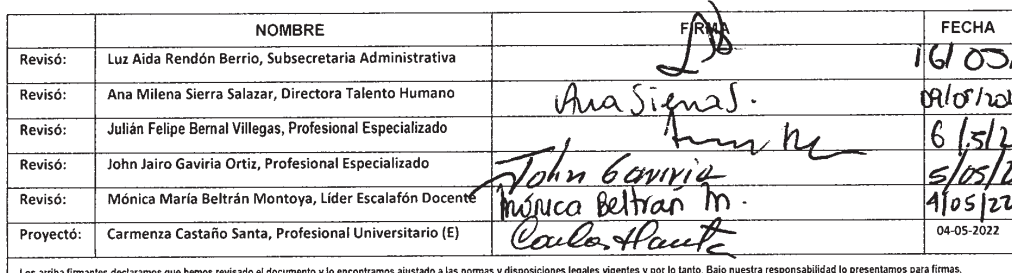 NOMBRE FIRMA FECHA
Revisó: Luz Aida Rendón Berrio, Subsecretaria Administrativa 16/05/
Revisó: Ana Milena Sierra Salazar, Directora Talento Humano Ana Sierra S. 09/05/202
Revisó: Julián Felipe Bernal Villegas, Profesional Especializado 6/5/2
Revisó: John Jairo Gaviria Ortiz, Profesional Especializado John Gaviria 5/05/2
Revisó: Mónica María Beltrán Montoya, Líder Escalafón Docente Mónica Beltrán M. 4/05/22
Proyectó: Carmenza Castaño Santa, Profesional Universitario (E) 04-05-2022
Los arriba firmantes declaramos que hemos revisado el documento y lo encontramos ajustado a las normas y disposiciones legales vigentes y por lo tanto, Bajo nuestra responsabilidad lo presentamos para firmas.